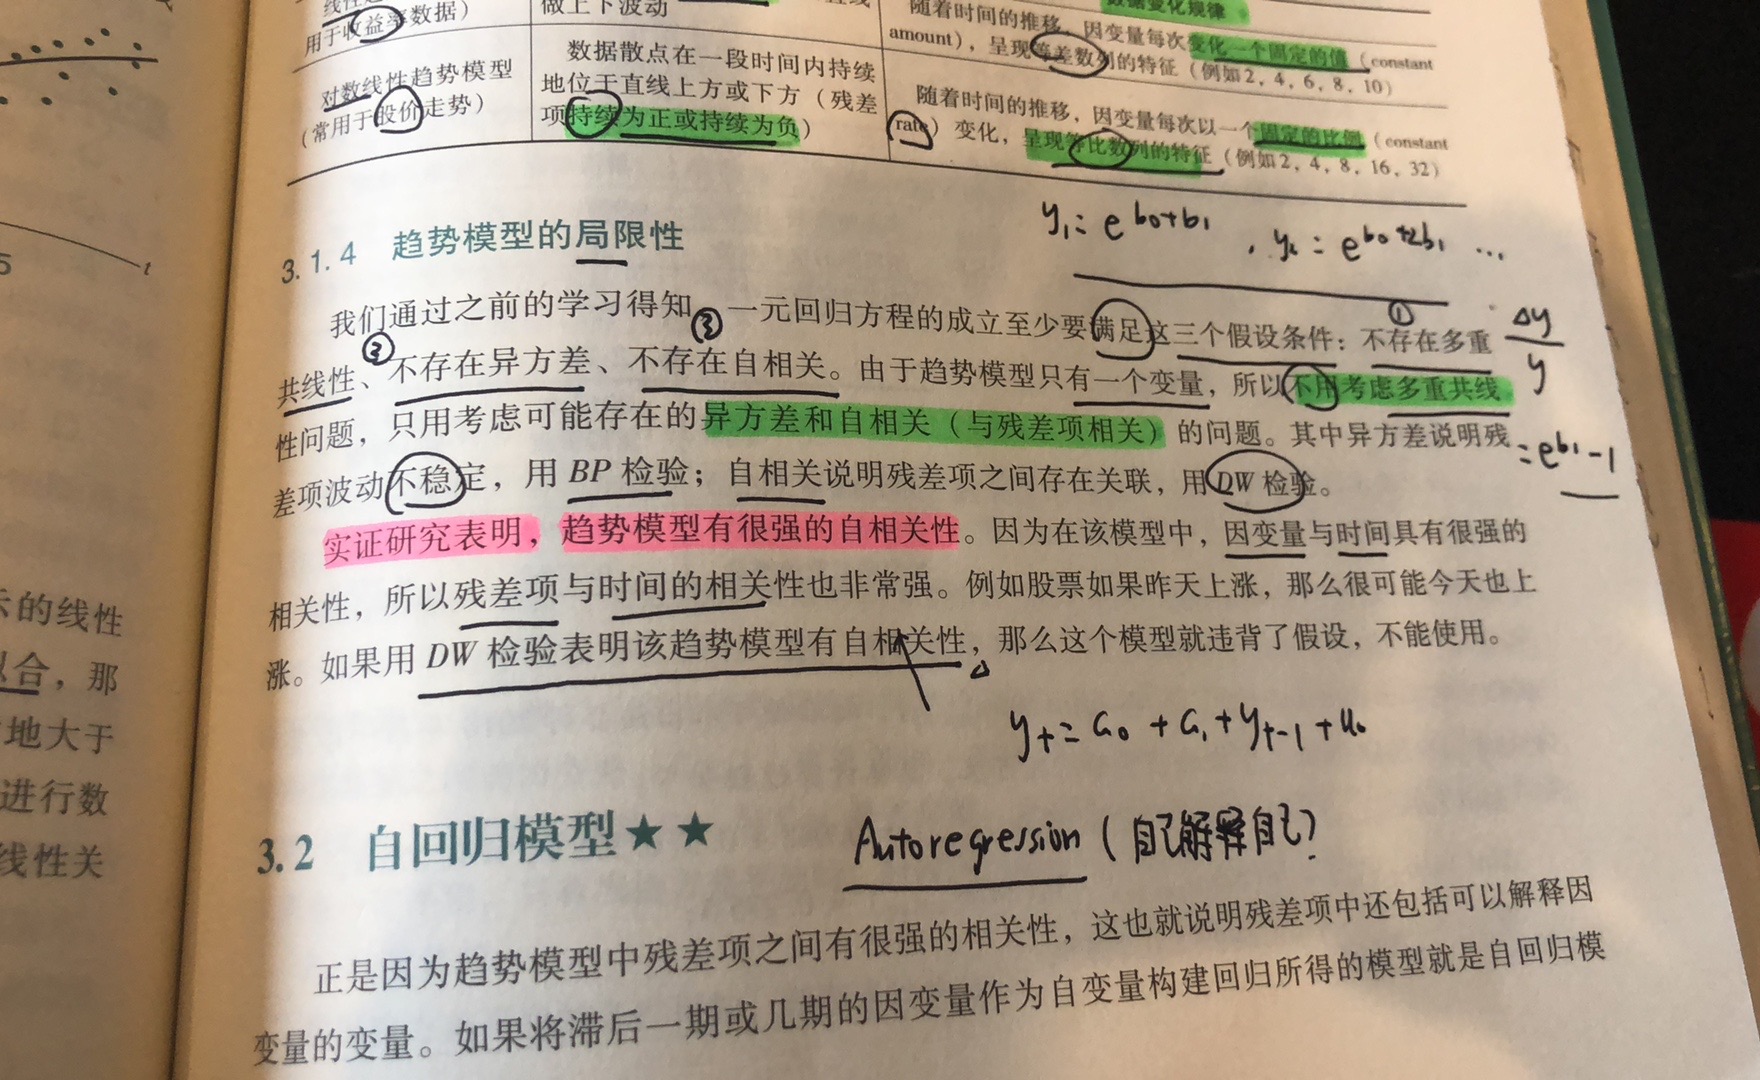 用于收益率数据)
做上下波动
数据变化规律
随着时间的推移,因变量每次变化一个固定的值(constant
amount),呈现等差数列的特征(例如2,4,6,8,10)
对数线性趋势模型
(常用于股价走势)
数据散点在一段时间内持续
地位于直线上方或下方(残差
项持续为正或持续为负)
随着时间的推移,因变量每次以一个固定的比例(constant
rate)变化,呈现等比数列的特征(例如2,4,8,16,32)
y₁= e^b0+b1 , y₂ = e^b0+2b1 ...
3.1.4 趋势模型的局限性
我们通过之前的学习得知,一元回归方程的成立至少要满足这三个假设条件:不存在多重
共线性、不存在异方差、不存在自相关。由于趋势模型只有一个变量,所以不用考虑多重共线
性问题,只用考虑可能存在的异方差和自相关(与残差项相关)的问题。其中异方差说明残
差项波动不稳定,用 BP 检验;自相关说明残差项之间存在关联,用 DW 检验。
①
②
Δy
y
= e^b1 -1
实证研究表明,趋势模型有很强的自相关性。因为在该模型中,因变量与时间具有很强的
相关性,所以残差项与时间的相关性也非常强。例如股票如果昨天上涨,那么很可能今天也上
涨。如果用 DW 检验表明该趋势模型有自相关性,那么这个模型就违背了假设,不能使用。
3.2 自回归模型★★
Autoregression (自己解释自己)
正是因为趋势模型中残差项之间有很强的相关性,这也就说明残差项中还包括可以解释因
变量的变量。如果将滞后一期或几期的因变量作为自变量构建回归所得的模型就是自回归模
t
5
示的线性
拟合,那
地大于
进行数
线性关